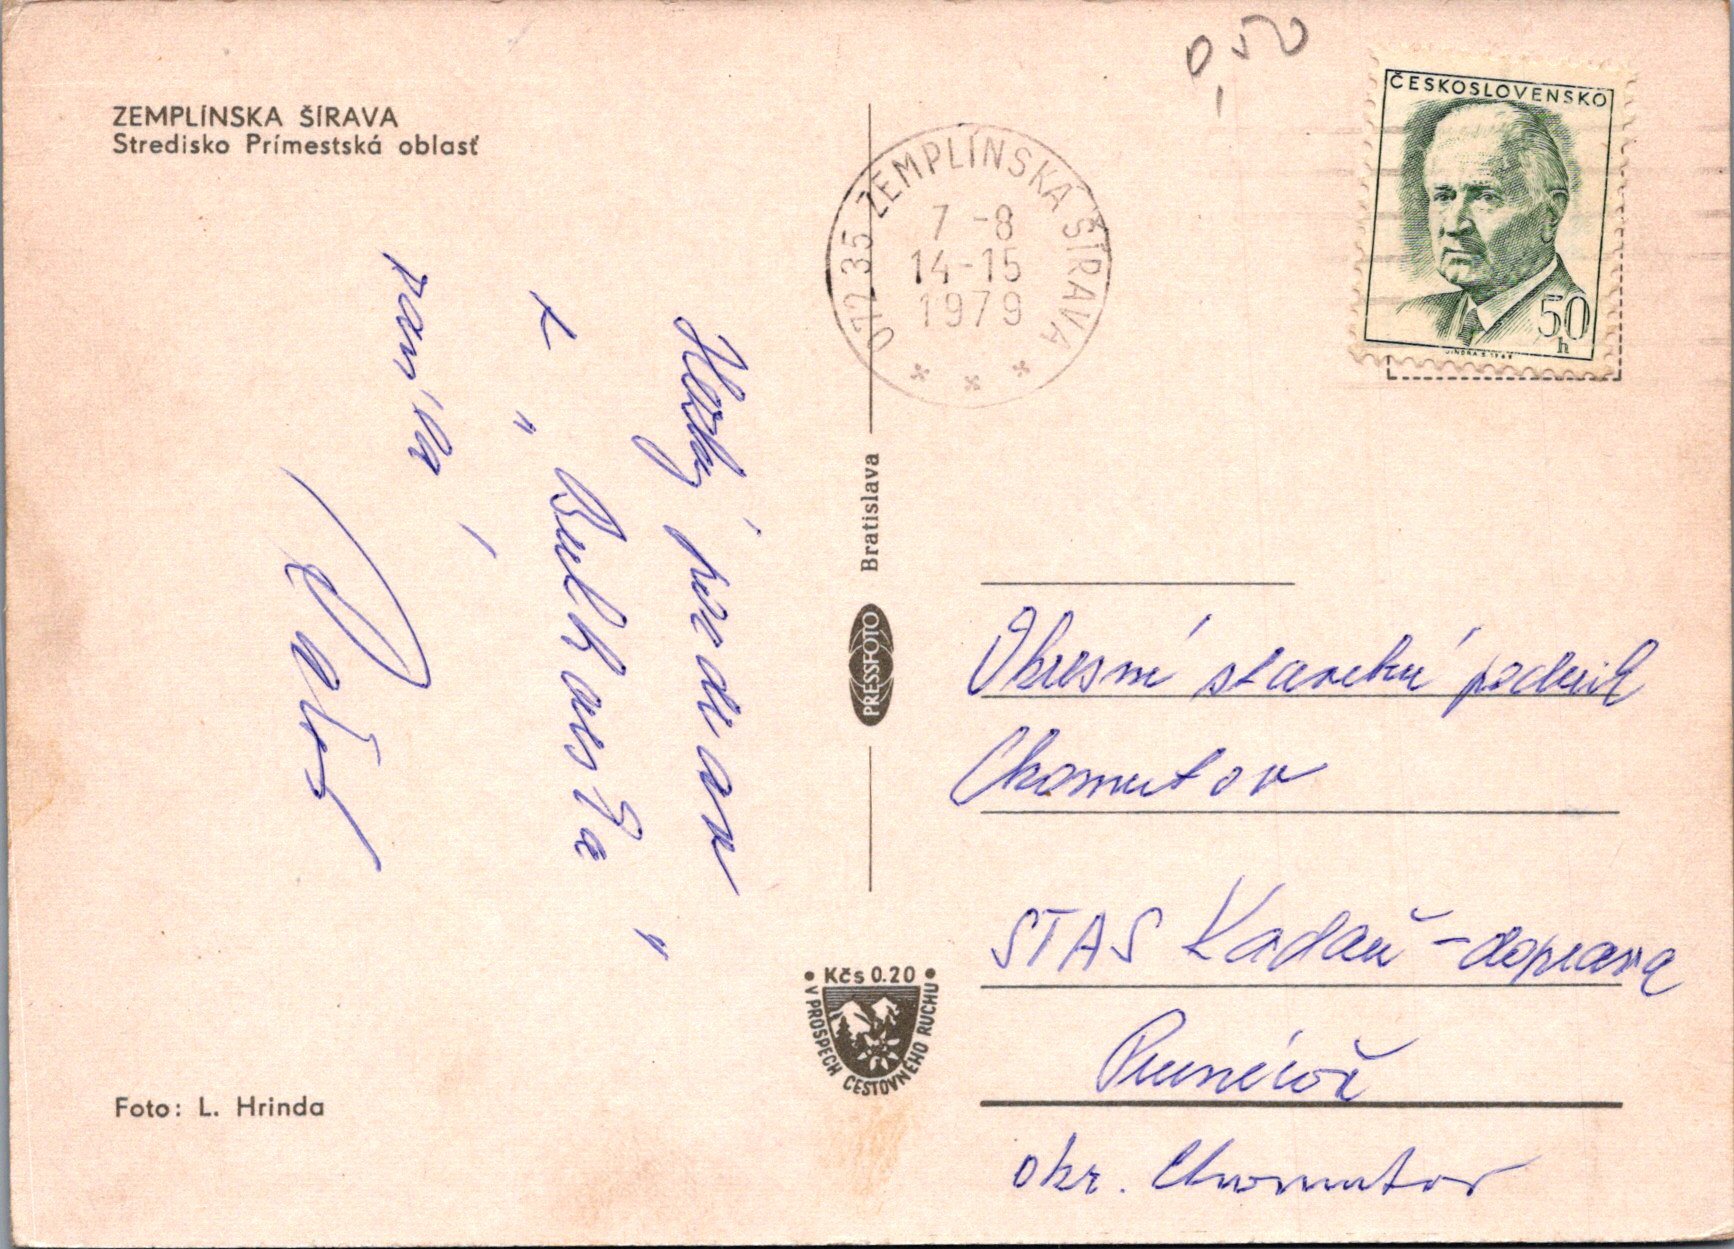 ZEMPLÍNSKA ŠÍRAVA
Stredisko Prímestská oblasť
0,50
ČESKOSLOVENSKO
50
h
JINDRA S. 1968
072 35 ZEMPLÍNSKA ŠÍRAVA
7 -8
14-15
1979
Hezký pozdrav
z
posílá
Bratislava
PRESSFOTO
Okresní stavební podnik
Chomutov
STAS Kadaň - doprava
Prunéřov
okr. Chomutov
Kčs 0.20
V PROSPECH CESTOVNÉHO RUCHU
Foto: L. Hrinda